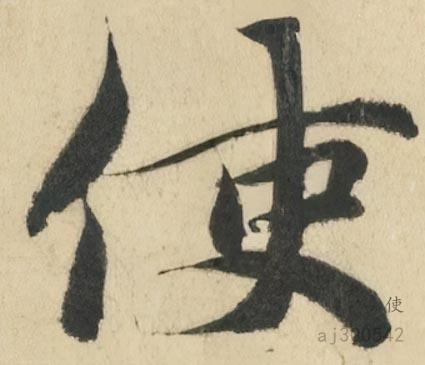 使
使
aj390542